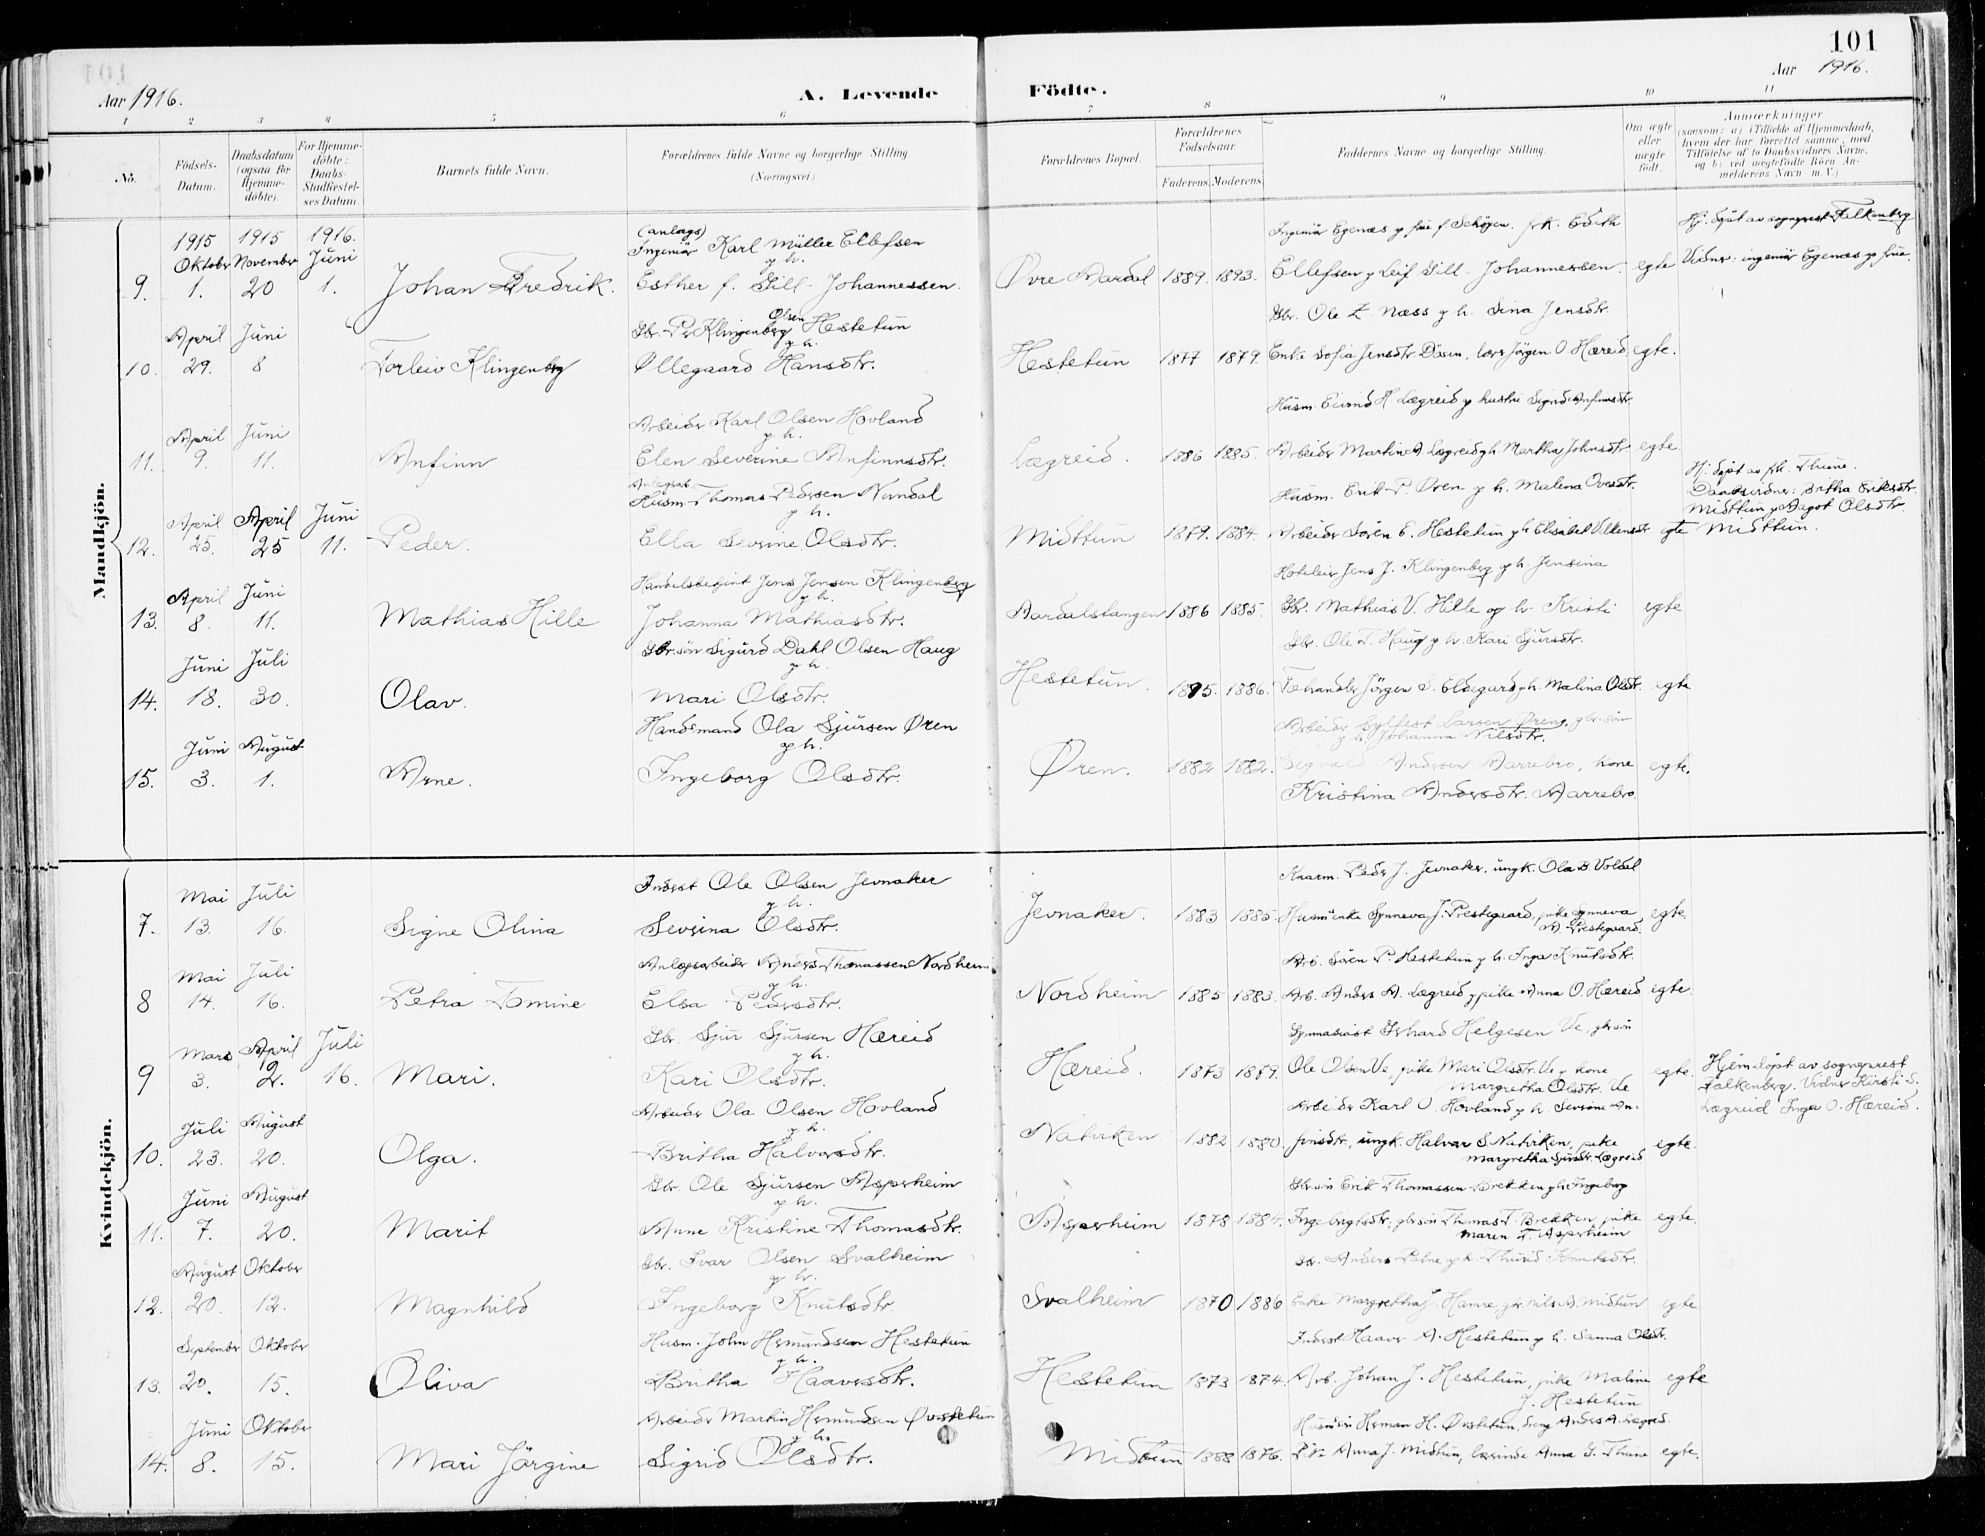 101
Aar 1916.
A. Levende Födte.
Aar 1916.
1 2 3 4 5 6 7 8 9 10 11
No. Födsels-Datum. Daabsdatum (ogsaa for Hjemme-döbte). For Hjemme-döbte: Daabs-Stadfæstel-ses Datum. Barnets fulde Navn. Forældrenes fulde Navne og borgerlige Stilling (Næringsvei.) Forældrenes Bopæl. Forældrenes Födselsaar. Faderens. Moderens. Faddernes Navne og borgerlige Stilling. Om ægte eller uægte födt. Anmærkninger (saasom: a) i Tilfælde af Hjemmedaab, hvem der har forrettet samme, med Tilföielse af to Daabsvidners Navne, og b) ved uægtefödte Börn An-melderens Navn m. V.)
Mandkjön.
1915 1915 1916. (anlægs) Ingeniör Egenæs g frue f. Schöyen. frk. Edith Hj. döpt av sogneprest Falkenberg
Oktober November Juni Ingeniör Karl Müller Ellefsen g. h.
9. 1. 20 1. Johan Fredrik. Esther f. Gill-Johannessen. Øvre Aardal 1889. 1893. Ellefsen g Leif Gill-Johannessen. egte Vidner: ingeniör Egenæs g frue.
April Juni Gbr. Pr Klingenberg Olsen Hestetun g. h. Gbr. Ole Z. Næss g h. Sina Jensdtr.
10. 29. 8 Torleiv Klingenberg Øllegaard Hansdtr. Hestetun 1877 1879 Enke Sofia Jensdtr. Dösen, lærer Jörgen O Hæreid. egte.
April Juni Arbeider Karl Olsen Hovland g. h. Husm. Eivind H. Lægreid g hustru Sigrid Anfinnsdtr.
11. 9. 11. Anfinn Elen Severine Anfinnsdtr. Lægreid. 1886 1885. Arbeider Martin A Lægreid g h. Martha Johnsdtr. egte.
April April Juni Anlægsarb. Husm. Thomas Pedersen Nundal g. h. Husm. Erik P. Øren g h. Malena Ovesdtr. Hj. döpt av frk. Thune.
12. 25. 25 11. Peder. Ella Severine Olsdtr. Midttun 1879. 1884. Arbeider Sören E. Hestetun g h Elisabet Villumsdtr egte Daabsvidner: Britha Eriksdtr. Midttun g Aagot Olsdtr. Midttun.
April Juni Handelsbetjent Jens Jensen Klingenberg g. h. Hoteleier Jens J. Klingenberg g h. Jensina
13. 8. 11. Mathias Hille Johanna Mathiasdtr. Aardalstangen 1886 1885. Gbr. Mathias V. Hille og h. Kristi egte
Juni Juli Gbr.sön Sigurd Dahl Olsen Haug g. h. Gbr. Ole T. Haug g h. Kari Sjursdtr.
14. 18. 30. Olav. Mari Olsdtr. Hestetun. 1895. 1886. Fæhandler Jörgen S. Eldegard g h. Malina Olsdtr. egte
Juni August Handelsmand Ola Sjursen Øren g. h. Arbeider Sylfest Larsen Øren, gbr. sön g h. Johanna Nilsdtr.
15. 3. 1. Arne. Ingeborg Olsdtr. Øren. 1882 1882. Sigvald Andersen Aarrebro, kone egte.
Kristina Andersdtr. Aarrebro.
Kvindekjön.
Mai Juli Inderst Ole Olsen Jevnaker g. h. Kaarm. Peder J. Jevnaker, ungk. Ola B Voldal
7. 13. 16. Signe Olina Severina Olsdtr. Jevnaker. 1883 1885. Husm'enke Synneva J. Prestegaard, pike Synneva A Prestegaard. egte
Mai Juli Anlægsarbeider Anders Thomassen Nordheim g. h. Arb. Sören P. Hestetun g h. Inga Knutsdtr.
8 14. 16. Petra Tomine Elsa Pedersdtr. Nordheim 1885 1883. Arb. Anders A. Lægreid g pike Anna O. Hæreid egte.
Mars April Juli Gbr. Sjur Sjursen Hæreid g. h. Gymnasiast Erhard Helgesen Ve, gbr sön
9 3. 2. 16. Mari. Kari Olsdtr. Hæreid. 1873 1889. Ole Olsen Ve, pike Mari Olsdtr. Ve g kone Margretha Olsdtr. Ve egte. Hjemdöpt av sogneprest Falkenberg. Vidner Kirsti S. Lægreid Inga O. Hæreid.
Juli August Arbeider Ola Olsen Hovland g. h. Arbeider Karl O. Hovland g h. Severine An-
10. 23. 20. Olga. Britha Halvorsdtr. Natviken 1882 1880. finsdtr, ungk. Halvor S. Natviken, pike Margretha Sjursdtr. Lægreid egte.
Juni August Gbr. Ole Sjursen Asperheim g. h. Gbr sön Erik Thomassen Brekken g h. Ingeborg
11. 7. 20. Marit Anne Kristine Thomasdtr. Asperheim 1878 1884. Ingebrigtsdtr, gbr sön Thomas T. Brekken, pike Maren T. Asperheim egte.
August Oktober Gbr. Ivar Olsen Svalheim g. h. Gbr. Anders g h. Thurid Knutsdtr.
12. 20. 12. Magnhild Ingeborg Knutsdtr. Svalheim 1870 1886 Enke Margretha J. Hamre, gbr Nils A. Midtun egte
September Oktober Husm. John Hermundsen Hestetun g. h. Inderst Haaver A. Hestetun g h. Sanna Olsdtr.
13. 20. 15. Oliva Britha Haaversdtr. Hestetun 1873 1874. Arb. Johan J. Hestetun, pike Maline J. Hestetun egte
Juni Oktober Arbeider Martin Hermundsen Øvstetun g. h. Husm'sön Herman H. Øvstetun, dreng Anders A. Lægreid.
14. 8. 15. Mari Jörgine Sigrid Olsdtr. Midttun 1888 1876. Anna J. Midtun, lærerinde Anna S. Thune egte.